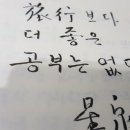 旅行보다
더 좋은
공부는 없다